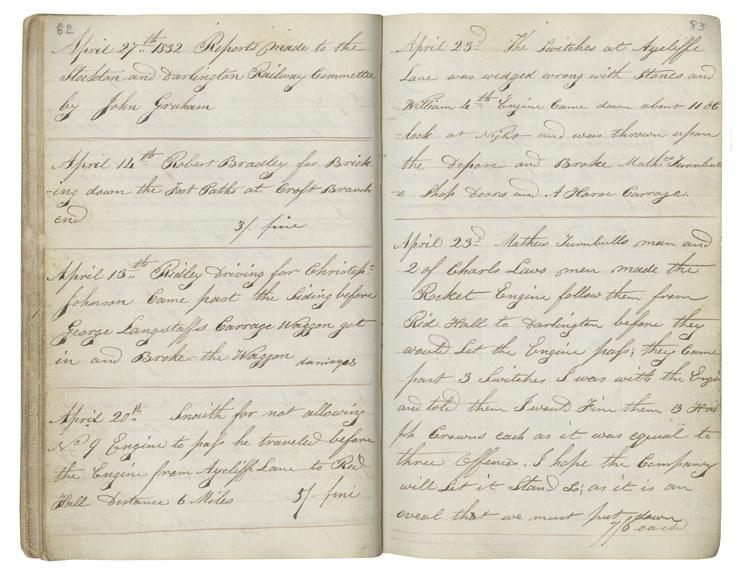 82
April 27th 1832 Reports made to the
Stockton and Darlington Railway Committee
by John Graham
April 14th Robert Bradley for Brick
-ing down the Foot Paths at Croft Branch
end
3/- fine
April 13th Ridley Driving for Christop
Johnson Came past the Siding before
George Langstaffs Carrage Waggon got
in and Broke the Waggon damages
April 20th Snaith for not allowing
No 9 Engine to pass he traveled before
the Engine from Aycliff Lane to Rid
Hall Distance 6 Miles 5/- fine
83
April 23d The Switches at Aycliffe
Lane was wedged wrong with Stones and
William 4th Engine Came down about 11 OC
-lock at Night and was thrown upon
the Depore and Broke Mathw Turnbull
s Shop Doors and A Horse Carrage.
April 23d Mathew Turnbulls man and
2 of Charls Laws men made the
Rocket Engine follow them from
Rid Hall to Darlington before they
would Let the Engine pass; they Came
past 3 Switches I was with the Engin
and told them I would Fine them 3 Half
ph Crowns each as it was equal to
three Offences. I hope the Company
will Let it Stand So; as it is an
eveal that we must put down
7/6 each